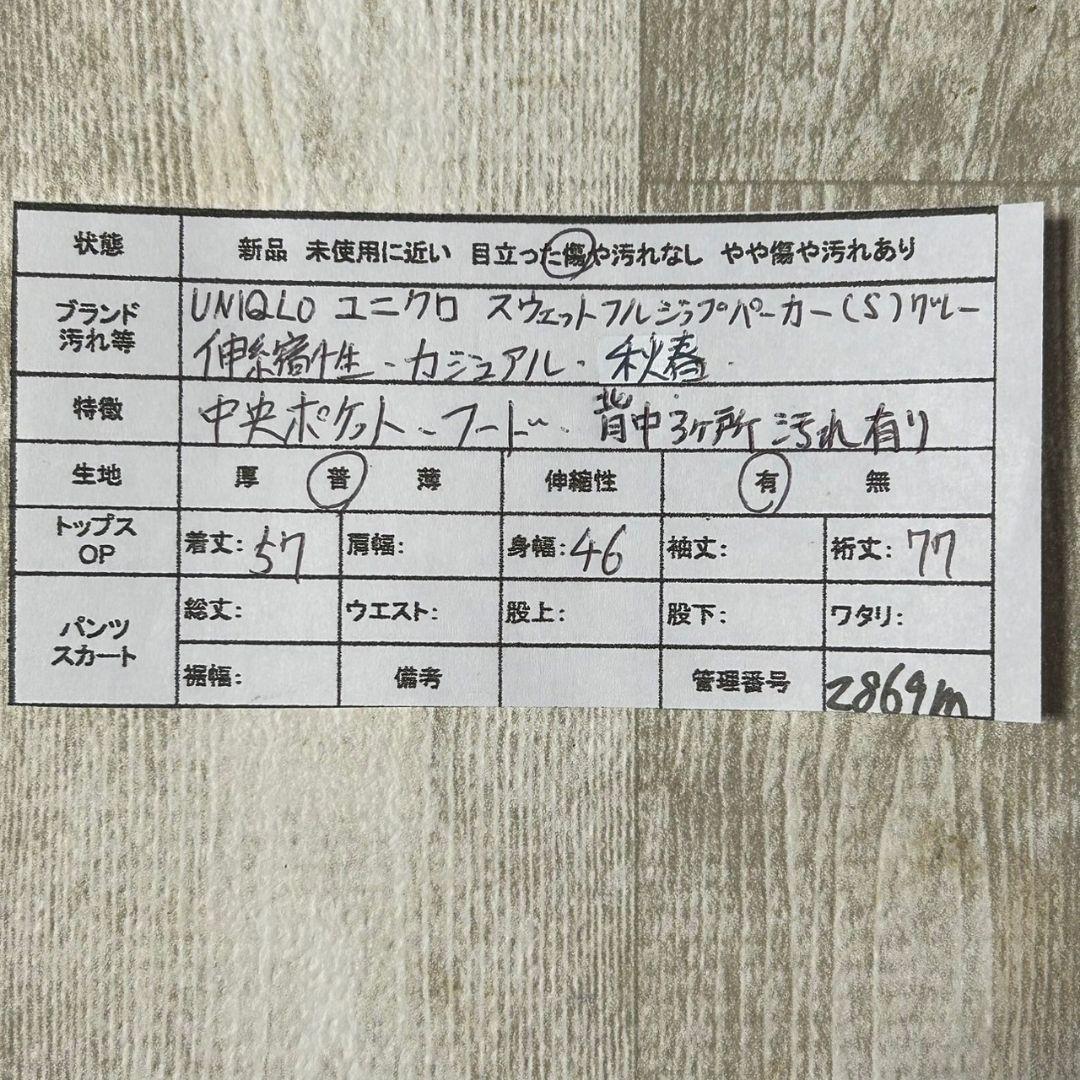 状態 新品 未使用に近い 目立った傷や汚れなし やや傷や汚れあり
ブランド 汚れ等 UNIQLO ユニクロ スウェットフルジップパーカー(S)グレー
伸縮性・カジュアル・秋春
特徴 中央ポケット・フード・背中3ヶ所汚れ有り
生地 厚 普 薄 伸縮性 有 無
トップス OP 着丈:57 肩幅: 身幅:46 袖丈: 裄丈:77
パンツ スカート 総丈: ウエスト: 股上: 股下: ワタリ:
裾幅: 備考 管理番号 2869m